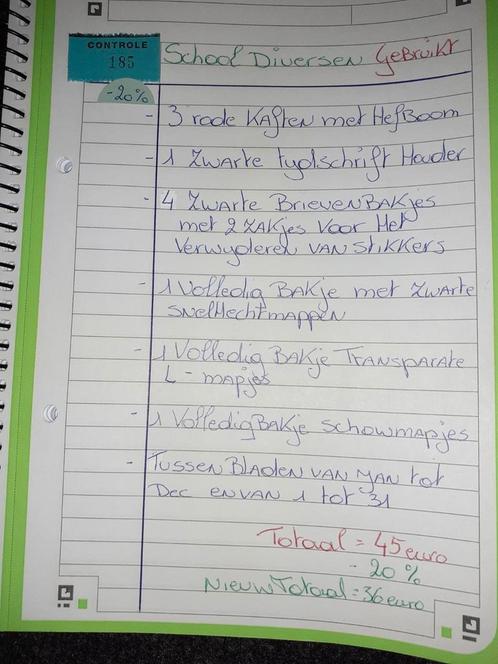 CONTROLE
185
-20%
School Diversen Gebruikt
- 3 rode Kaften met HefBoom
- 1 Zwarte tydschrift Houder
- 4 Zwarte BrievenBakjes
met 2 zakjes voor Het
Verwyderen van stikkers
- 1 Volledig Bakje met Zwarte
snelHechtmappen
- 1 Volledig Bakje Transparate
L-mapjes
- 1 Volledig Bakje schowmapjes
- Tussen Bladen van Jan tot
Dec en van 1 tot 31
Totaal = 45 euro
- 20 %
Nieuw Totaal = 36 euro